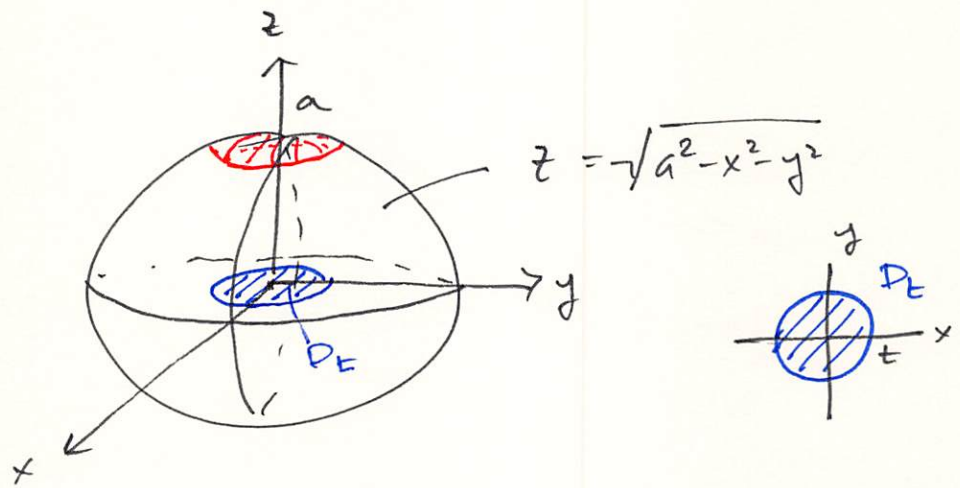 z
a
z = √a²-x²-y²
y
D_t
y
x
t
D_t
x